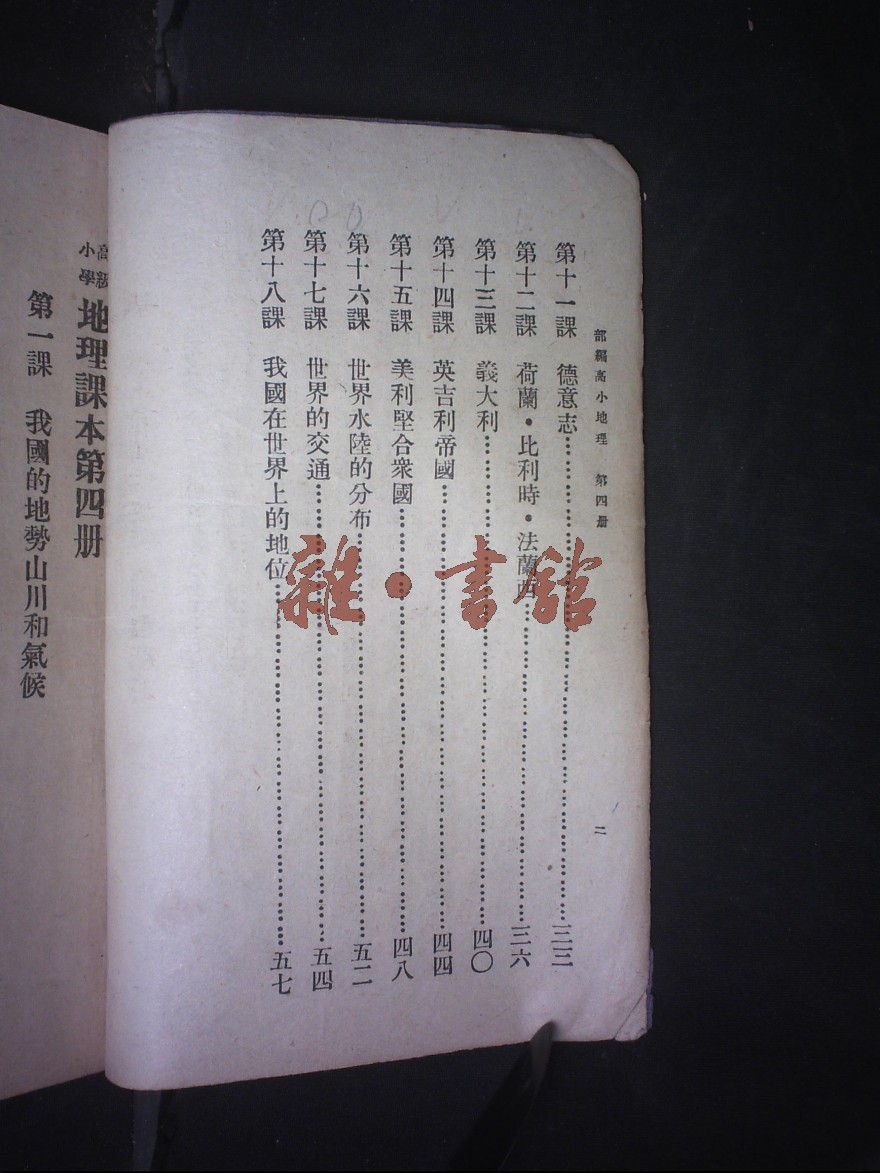 部編高小地理　第四册
二
第十一課　德意志……三三
第十二課　荷蘭・比利時・法蘭西……三六
第十三課　義大利……四〇
第十四課　英吉利帝國……四四
第十五課　美利堅合衆國……四八
第十六課　世界水陸的分布……五二
第十七課　世界的交通……五四
第十八課　我國在世界上的地位……五七
高級小學 地理課本第四册
第一課　我國的地勢山川和氣候
雜・書館